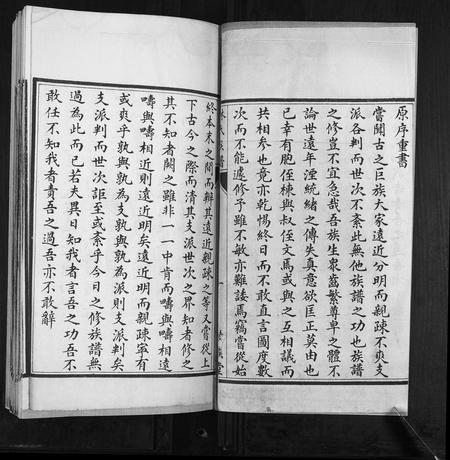 原序重書
嘗聞古之巨族大家遠近分明而親疎不爽支
派各判而世次不紊此無他族譜之功也族譜
之修豈不宜急哉吾族生衆齒繁尊卑之體不
論世遠年湮統緒之傳失真意欲匡正莫由也
已幸有胞侄棟與叔侄文焉或與之互相議而
共相参也竟亦乾惕終日而不敢直言圖度數
次而不能遽修予雖不敏亦難諉焉竊嘗從始
終本末之間而辨其遠近親疎之等又嘗從上
下古今之際而清其支派世次之界知者修之
其不知者闕之雖非一一中肯而疇與疇相遠
疇與疇相近則遠近明矣遠近明而親疎寧有
或爽乎孰為支孰與孰為派則支派判矣
支派判而世次詎至或紊乎今日之修族譜無
過為此而已若夫異日知我者言吾之功吾不
敢任不知我者責吾之過吾亦不敢辭